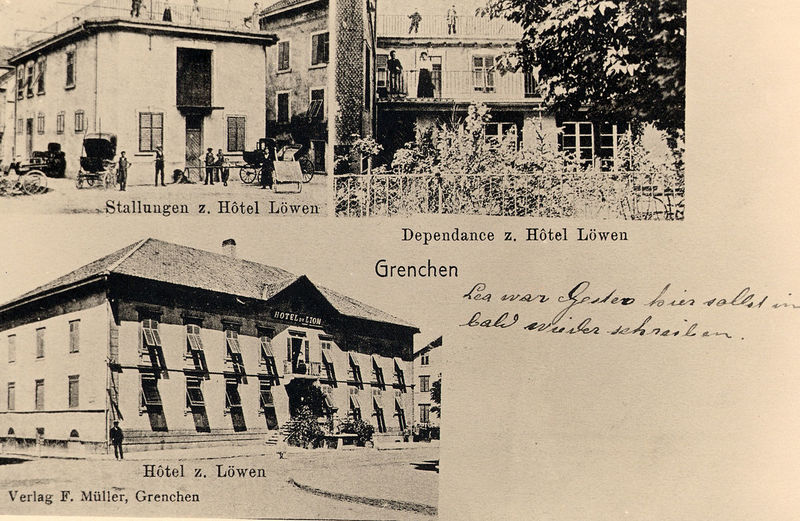 Stallungen z. Hôtel Löwen
Dependance z. Hôtel Löwen
Grenchen
Lea war Gester hier sollst in
bald wieder schreiben.
HÔTEL DU LION
Hôtel z. Löwen
Verlag F. Müller, Grenchen